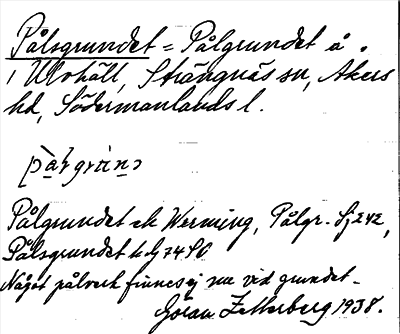 Pålsgrundet = Pålgrundet å
i Ulvhäll, Strängnäs sn, Åkers
hd, Södermanlands l.
Pålgrundet ek Werming, Pålgr. Sj 242,
Pålsgrundet
Något pålverk finnes ej nu vid grundet.
Göran Zetterberg 1938.